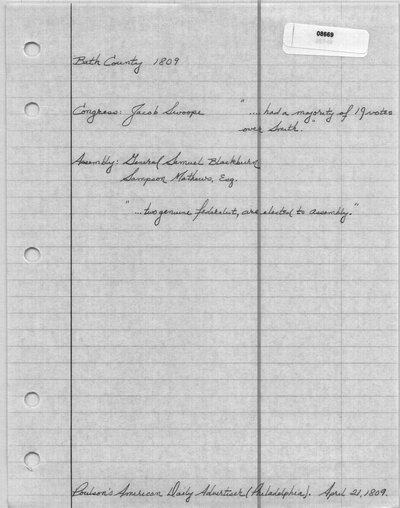 08669
Bath County 1809
Congress: Jacob Swoope "....had a majority of 19 votes
over Smith."
Assembly: General Samuel Blackburn
Sampson Mathews, Esq.
"...two genuine federalist, are elected to assembly."
Poulson's American Daily Advertiser (Philadelphia). April 21, 1809.